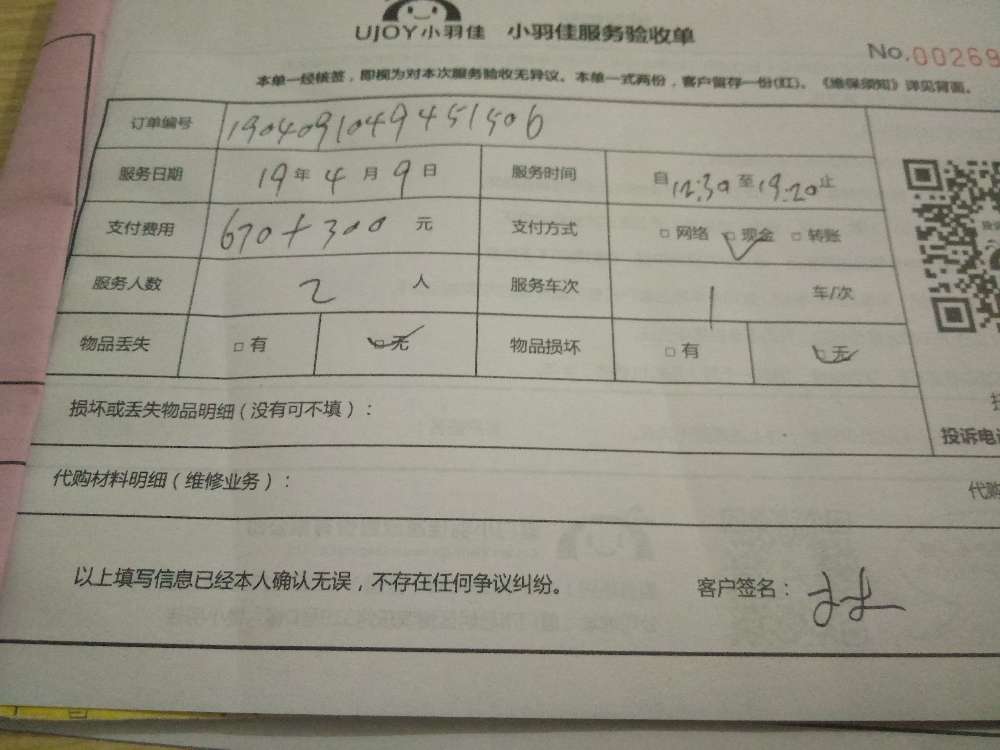 UJOY小羽佳 小羽佳服务验收单
No.00269
本单一经核签，即视为对本次服务验收无异议。本单一式两份，客户留存一份(红)。《维保须知》详见背面。
订单编号 1904091049451506
服务日期 19年4月9日 服务时间 自12:30至19:20止
支付费用 670+300元 支付方式 □网络 □现金 □转账
服务人数 2人 服务车次 1车/次
物品丢失 □有 □无 物品损坏 □有 □无
损坏或丢失物品明细（没有可不填）：
投诉电话
代购材料明细（维修业务）：
代购
以上填写信息已经本人确认无误，不存在任何争议纠纷。 客户签名：